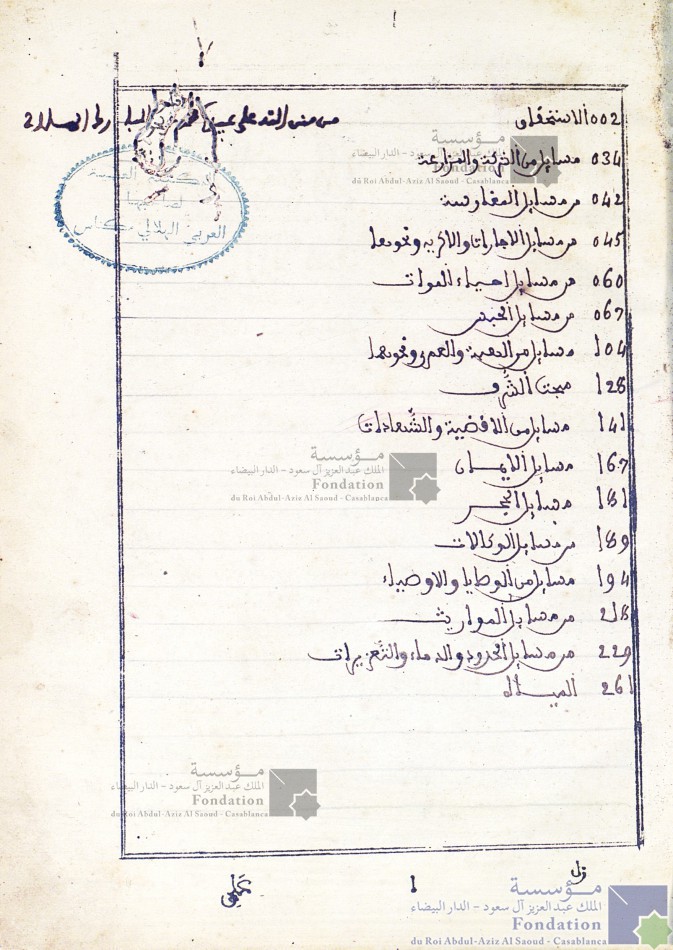 من منن الله على عبيد
002 الاستحقاق
034 مسايل من الشركة والمزارعة
042 من مسايل المغارسة
045 من مسايل الاجارات والاكرية ونحوها
060 من مسايل احياء الموات
067 من مسايل الحبس
104 مسايل من الهبة والعمرى ونحوهما
128 مبحث الشرف
141 مسايل من الاقضية والشهادات
167 مسايل الايمان
181 مسايل الحجر
189 من مسايل الوكالات
194 مسايل من الوصايا والاوصياء
218 من مسايل المواريث
229 من مسايل الحدود والدماء والتعزيرات
261 المياه
العربي الهلالي مكناس
1
مؤسسة
الملك عبد العزيز آل سعود - الدار البيضاء
Fondation
du Roi Abdul-Aziz Al Saoud - Casablanca
مؤسسة
الملك عبد العزيز آل سعود - الدار البيضاء
Fondation
du Roi Abdul-Aziz Al Saoud - Casablanca
مؤسسة
الملك عبد العزيز آل سعود - الدار البيضاء
du Roi Abdul-Aziz Al Saoud - Casablanca
مؤسسة
الملك عبد العزيز آل سعود - الدار البيضاء
Fondation
du Roi Abdul-Aziz Al Saoud - Casablanca